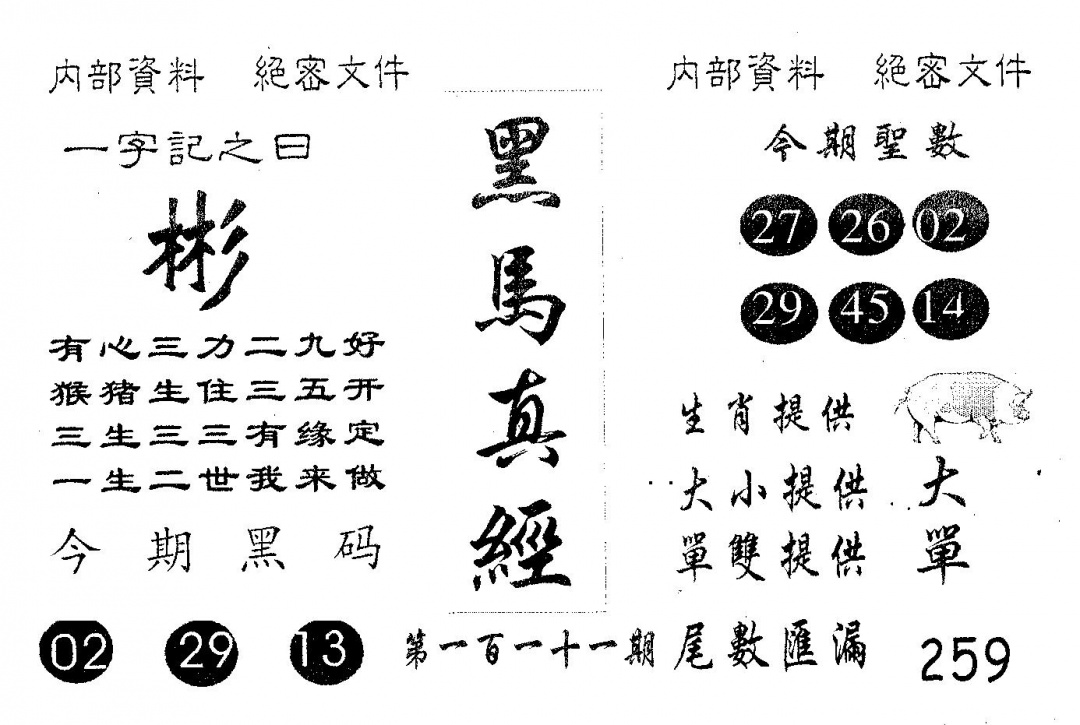 内部資料 絕密文件
一字記之曰
彬
有心三力二九好
猴猪生住三五开
三生三三有缘定
一生二世我来做
今期黑码
02 29 13
黑馬真經
第一百一十一期
内部資料 絕密文件
今期聖數
27 26 02
29 45 14
生肖提供
大小提供 大
單雙提供 單
尾數匯漏 259